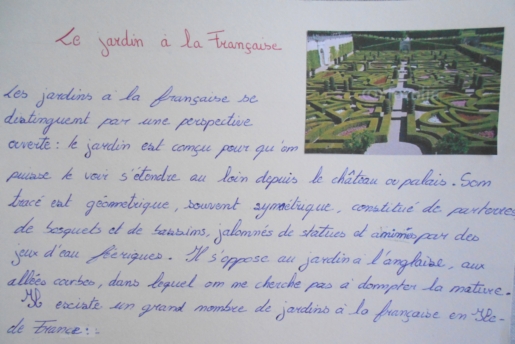 Le jardin à la Française
Les jardins à la française se
distinguent par une perspective
ouverte : le jardin est conçu pour qu'on
puisse le voir s'étendre au loin depuis le château o palais. Son
tracé est géometrique, souvent symétrique, constitué de parterres
de bosquets et de bassins, jalonnés de statues et animés par des
jeux d'eau féeriques. Il s'oppose au jardin à l'anglaise, aux
allées courbes, dans lequel on ne cherche pas à dompter la nature.
Il exciste un grand nombre de jardins à la française en Ile-
de France :.